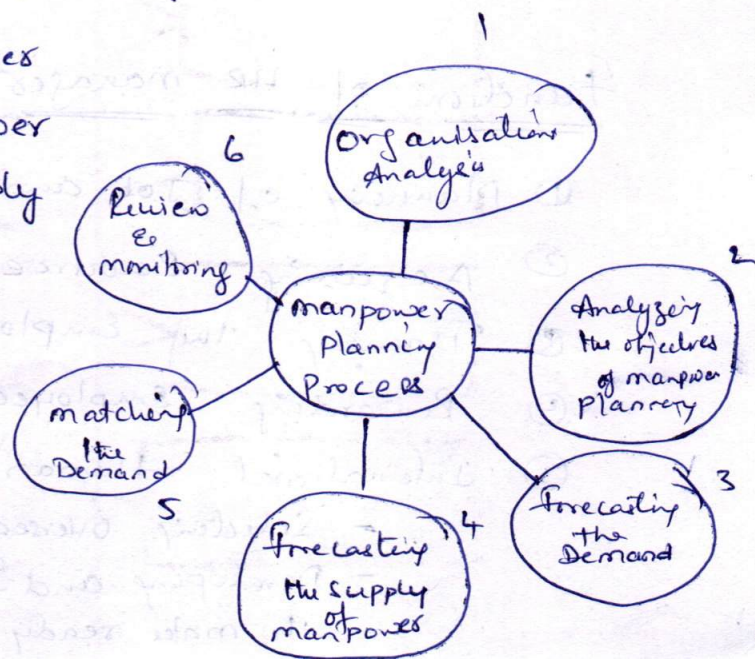 1
Organisation
Analysis
2
Analyzing
the objectives
of manpower
planning
3
Forecasting
the
Demand
4
Forecasting
the supply
of
manpower
5
matching
the
Demand
6
Review
&
monitoring
manpower
Planning
Process